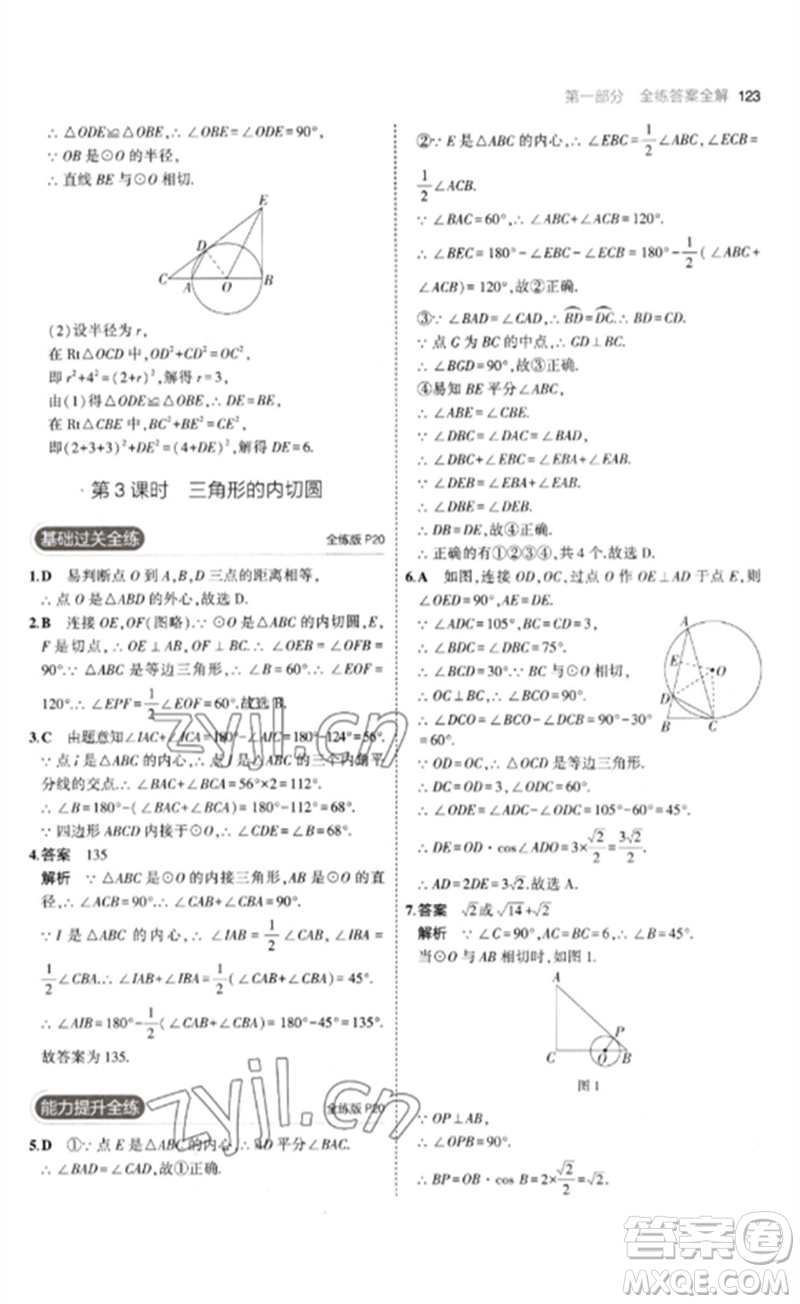 第一部分 全练答案全解 123
∴ △ODE≌△OBE,∴ ∠OBE=∠ODE=90°,
∵ OB 是⊙O 的半径,
∴ 直线 BE 与⊙O 相切.
E
D
C A O B
(2)设半径为 r,
在 Rt△OCD 中,OD²+CD²=OC²,
即 r²+4²=(2+r)²,解得 r=3,
由(1)得△ODE≌△OBE,∴ DE=BE,
在 Rt△OBE 中,BC²+BE²=CE²,
即(2+3+3)²+DE²=(4+DE)²,解得 DE=6.
第 3 课时 三角形的内切圆
基础过关全练 全练版 P20
1.D 易判断点 O 到 A,B,D 三点的距离相等,
∴ 点 O 是△ABD 的外心,故选 D.
2.B 连接 OE,OF(图略).∵ ⊙O 是△ABC 的内切圆,E,
F 是切点,∴ OE⊥AB,OF⊥BC.∴ ∠OEB=∠OFB=
90°.∵ △ABC 是等边三角形,∴ ∠B=60°.∴ ∠EOF=
120°.∴ ∠EPF=1/2∠EOF=60°.故选 B.
3.C 由题意知∠IAC+∠ICA=180°-∠AIC=180°-124°=56°.
∵ 点 i 是△ABC 的内心,∴ 点 i 是△ABC 的三个内角平
分线的交点.∴ ∠BAC+∠BCA=56°×2=112°.
∴ ∠B=180°-(∠BAC+∠BCA)=180°-112°=68°.
∵ 四边形 ABCD 内接于⊙O,∴ ∠CDE=∠B=68°.
4.答案 135
解析 ∵ △ABC 是⊙O 的内接三角形,AB 是⊙O 的直
径,∴ ∠ACB=90°.∴ ∠CAB+∠CBA=90°.
∵ I 是△ABC 的内心,∴ ∠IAB=1/2∠CAB,∠IBA=
1/2∠CBA.∴ ∠IAB+∠IBA=1/2(∠CAB+∠CBA)=45°.
∴ ∠AIB=180°-1/2(∠CAB+∠CBA)=180°-45°=135°.
故答案为 135.
能力提升全练 全练版 P20
5.D ①∵ 点 E 是△ABC 的内心,∴ AD 平分∠BAC.
∴ ∠BAD=∠CAD,故①正确.
②∵ E 是△ABC 的内心,∴ ∠EBC=1/2∠ABC,∠ECB=
1/2∠ACB.
∵ ∠BAC=60°,∴ ∠ABC+∠ACB=120°.
∴ ∠BEC=180°-∠EBC-∠ECB=180°-1/2(∠ABC+
∠ACB)=120°,故②正确.
③∵ ∠BAD=∠CAD,∴ BD=DC.∴ BD=CD.
∵ 点 G 为 BC 的中点,∴ GD⊥BC.
∴ ∠BGD=90°,故③正确.
④易知 BE 平分∠ABC,
∴ ∠ABE=∠CBE.
∵ ∠DBC=∠DAC=∠BAD,
∴ ∠DBC+∠CBE=∠ABE+∠EAB.
∵ ∠DEB=∠ABE+∠EAB,
∴ ∠DBE=∠DEB.
∴ DB=DE,故④正确.
∴ 正确的有①②③④,共 4 个.故选 D.
6.A 如图,连接 OD,OC,过点 O 作 OE⊥AD 于点 E,则
∠OED=90°,AE=DE.
∵ ∠ADC=105°,BC=CD=3,
∴ ∠BDC=∠DBC=75°.
∴ ∠BCD=30°.
∵ ⊙O 与边 BC 相切,
∴ OC⊥BC,∴ ∠BCO=90°.
∴ ∠DCO=∠BCO-∠BCD=90°-30°
=60°.
A
E O
D
B C
∵ OD=OC,∴ △OCD 是等边三角形.
∴ DC=OD=3,∠ODC=60°.
∴ ∠ADO=∠ADC-∠ODC=105°-60°=45°.
∴ DE=OD·cos∠ADO=3×√2/2=3√2/2.
∴ AD=2DE=3√2.故选 A.
7.答案 √2或√14+√2
解析 ∵ ∠C=90°,AC=BC=6,∴ ∠B=45°.
当⊙O 与 AB 相切时,如图 1.
A
P
C O B
图 1
∵ OP⊥AB,
∴ ∠OPB=90°.
∴ BP=OB·cos B=2×√2/2=√2.
zyjl.cn
zyjl.cn
答案圈
MXQE.COM